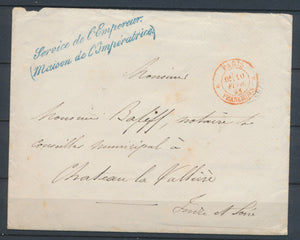 Service de l'Empereur.
(Maison de l'Impératrice)
PARIS
Monsieur
Monsieur notaire
conseiller municipal à
Chateau la Vallière
Indre et Loire